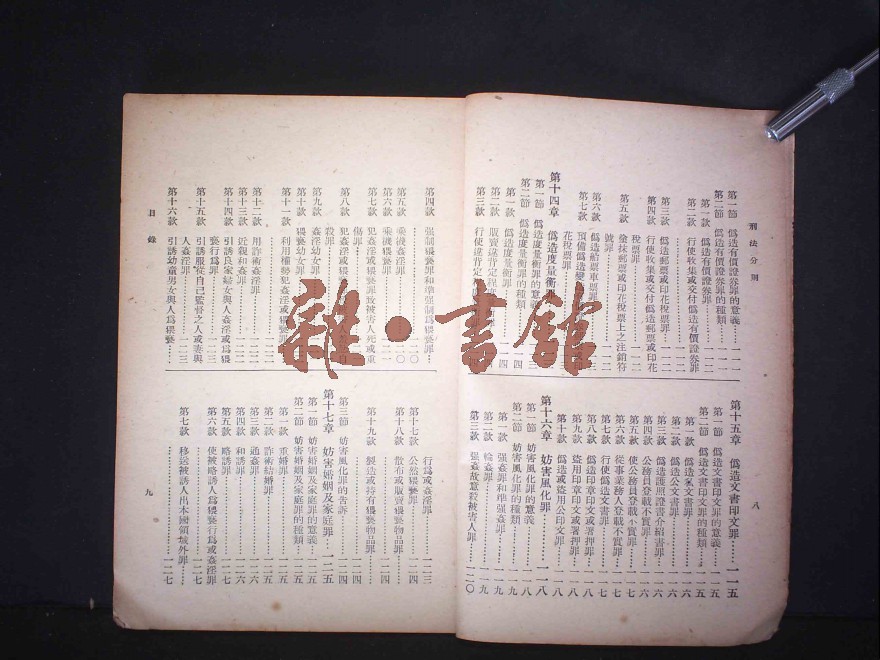 刑法分則
第一節 偽造有價證券罪的意義……一一一
第二節 偽造有價證券罪的種類……一一一
第一款 偽造有價證券罪
第二款 行使收集或交付偽造有價證券罪
第三款 偽造郵票或印花稅票罪
第四款 行使收集或交付偽造郵票或印花
稅票罪
第五款 塗抹郵票或印花稅票上之註銷符
號罪
第六款 偽造船票車票罪
第七款 預備偽造變
花稅票罪
第十四章 偽造度量衡罪
第一節 偽造度量衡罪的意義
第二節 偽造度量衡罪的種類
第一款 偽造度量衡罪
第二款 販賣違背定程
第三款 行使違背定程
第十五章 偽造文書印文罪……一一五
第一節 偽造文書印文罪的意義……一一五
第二節 偽造文書印文罪的種類……一一五
第一款 偽造私文書罪……一一六
第二款 偽造公文書罪……一一六
第三款 偽造護照證書介紹書罪……一一六
第四款 公務員登載不實罪……一一六
第五款 使公務員登載不實罪……一一七
第六款 從事業務人登載不實罪……一一七
第七款 行使偽造文書罪……一一七
第八款 偽造印章印文或署押罪……一一八
第九款 盜用印章印文或署押罪……一一八
第十款 偽造或盜用公印文罪……一一八
第十六章 妨害風化罪……一一八
第一節 妨害風化罪的意義……一一八
第二節 妨害風化罪的種類……一一九
第一款 強姦罪和準強姦罪……一一九
第二款 輪姦罪……一一九
第三款 強姦故意殺被害人罪……一二〇
八
第四款 強制猥褻罪和準強制猥褻罪……一二〇
第五款 乘機姦淫罪
第六款 乘機猥褻罪……一二〇
第七款 犯姦淫或猥褻罪致被害人死或重
傷罪
第八款 犯姦淫或猥褻罪
殺罪
第九款 姦淫幼女罪
第十款 猥褻幼女罪
第十一款 利用權勢犯姦淫或猥褻罪
第十二款 用詐術姦淫罪
第十三款 近親和姦罪
第十四款 引誘良家婦女與人姦淫或為猥
褻行為罪
第十五款 引誘服從自己監督之人或妻與
人姦淫罪……一二三
第十六款 引誘幼童男女與人為猥褻
行為或姦淫罪……一二三
第十七款 公然猥褻罪……一二四
第十八款 散布或販賣猥褻物品罪
第十九款 製造或持有猥褻物品罪……一二四
第三節 妨害風化罪的告訴……一二四
第十七章 妨害婚姻及家庭罪……一二五
第一節 妨害婚姻及家庭罪的意義……一二五
第二節 妨害婚姻及家庭罪的種類……一二五
第一款 重婚罪……一二五
第二款 詐術結婚罪……一二五
第三款 通姦罪……一二六
第四款 和誘罪……一二六
第五款 略誘罪……一二七
第六款 使被略誘人為猥褻行為或姦淫罪……一二七
第七款 移送被誘人出本國領域外罪……一二七
目錄
九
雜·書館